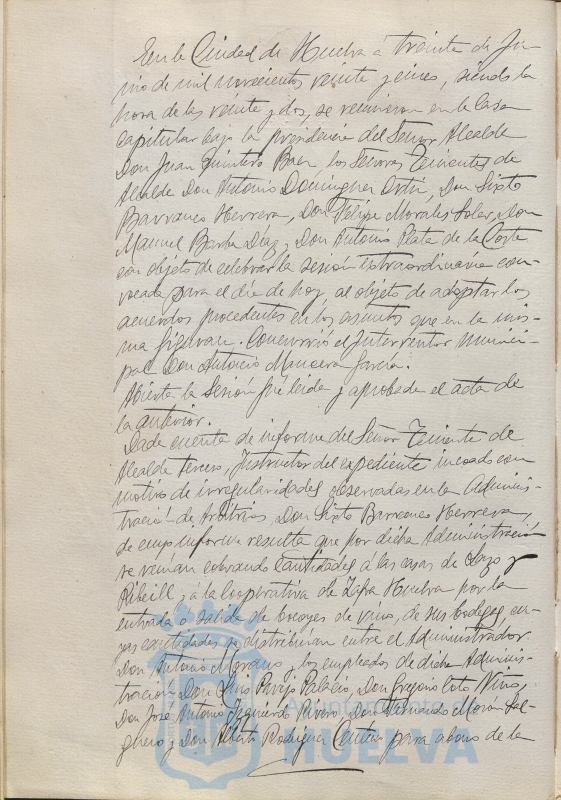 En la Ciudad de Huelva á treinta de Ju-
nio de mil novecientos veinte y cinco, siendo la
hora de las veinte y dos, se reunieron en la Casa
Capitular bajo la presidencia del Señor Alcalde
Don Juan Quintero Baez los Señores Tenientes de
Alcalde Don Antonio Dominguez Ortiz, Don Sixto
Barranco Herrera, Don Felipe Morales Soler, Don
Manuel Barba Díaz y Don Antonio Plata de la Corte
con objeto de celebrar la sesión extraordinaria con-
vocada para el día de hoy, al objeto de adoptar los
acuerdos procedentes en los asuntos que en la mis-
ma figuran. Concurrió el Interventor Munici-
pal Don Antonio Mancera García.
Abierta la Sesión fué leida y aprobada el acta de
la anterior.
Dada cuenta de informe del Señor Teniente de
Alcalde tercero, Instructor del expediente incoado con
motivo de irregularidades observadas en la Adminis-
tración de Arbitrios, Don Sixto Barranco Herrera,
de cuyo informe resulta que por dicha Administración
se venían cobrando Cantidades á las casas de Lazo y
Ribeill y á la Cooperativa de Zafra Huelva por la
entrada o salida de bocoyes de vino, de sus bodegas cu-
yas cantidades se distribuían entre el Administrador
Don Antonio Morano y los empleados de dicha Adminis-
tración Don Luis Parejo Palacio, Don Gregorio Coto Niño,
Don José Antonio Izquierdo Rivero, Don Fernando Moran Sal-
ghero y Don Alberto Rodriguez para abono de la
Ayuntamiento de
HUELVA